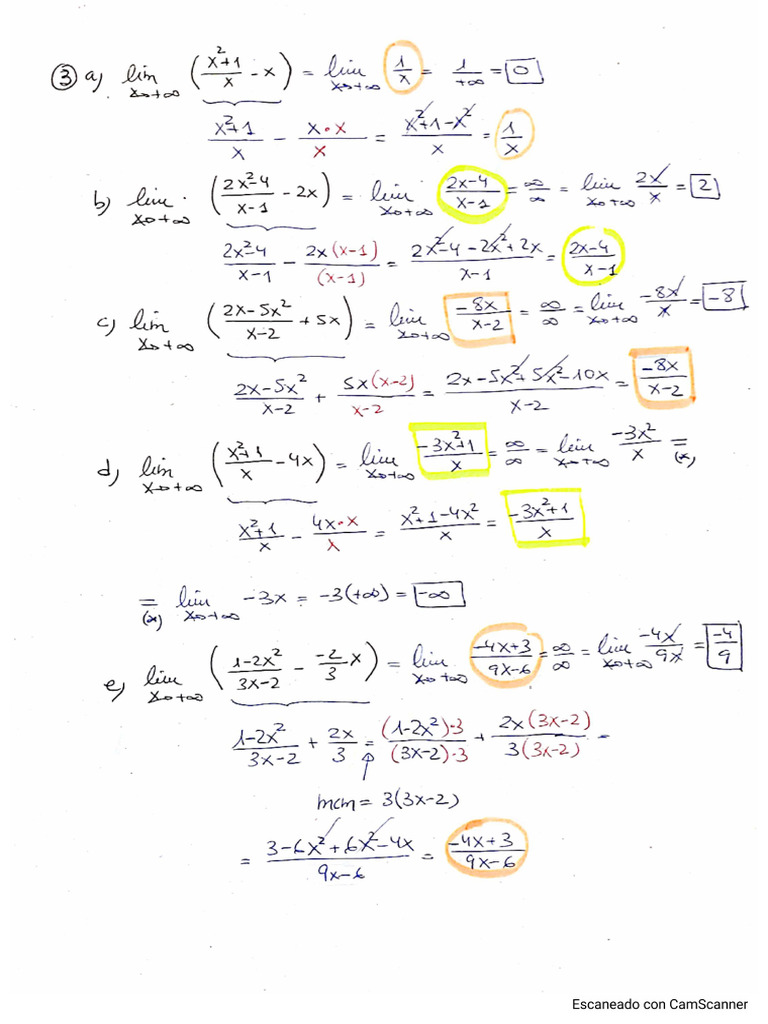 ③ a) lim x→+∞ (x²+1/x - x) = lim x→+∞ 1/x = 1/+∞ = 0
x²+1/x - x·x/x = x²+1-x²/x = 1/x
b) lim x→+∞ (2x²-4/x-1 - 2x) = lim x→+∞ 2x-4/x-1 = ∞/∞ = lim x→+∞ 2x/x = 2
2x²-4/x-1 - 2x(x-1)/(x-1) = 2x²-4-2x²+2x/x-1 = 2x-4/x-1
c) lim x→+∞ (2x-5x²/x-2 + 5x) = lim x→+∞ -8x/x-2 = ∞/∞ = lim x→+∞ -8x/x = -8
2x-5x²/x-2 + 5x(x-2)/x-2 = 2x-5x²+5x²-10x/x-2 = -8x/x-2
d) lim x→+∞ (x²+1/x - 4x) = lim x→+∞ -3x²+1/x = ∞/∞ = lim x→+∞ -3x²/x = (*)
x²+1/x - 4x·x/x = x²+1-4x²/x = -3x²+1/x
= (*) lim x→+∞ -3x = -3(+∞) = -∞
e) lim x→+∞ (1-2x²/3x-2 - -2/3 x) = lim x→+∞ -4x+3/9x-6 = ∞/∞ = lim x→+∞ -4x/9x = -4/9
1-2x²/3x-2 + 2x/3 = (1-2x²)·3/(3x-2)·3 + 2x(3x-2)/3(3x-2) =
mcm = 3(3x-2)
= 3-6x²+6x²-4x/9x-6 = -4x+3/9x-6
Escaneado con CamScanner